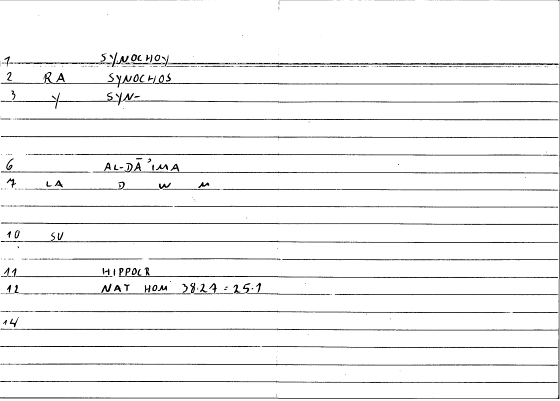 1 SYNOCHOY
2 RA SYNOCHOS
3 Y SYN-
6 AL-DĀ'IMA
7 LA D W M
10 SU
11 HIPPOCR
12 NAT HOM 38.27 = 25.1
14